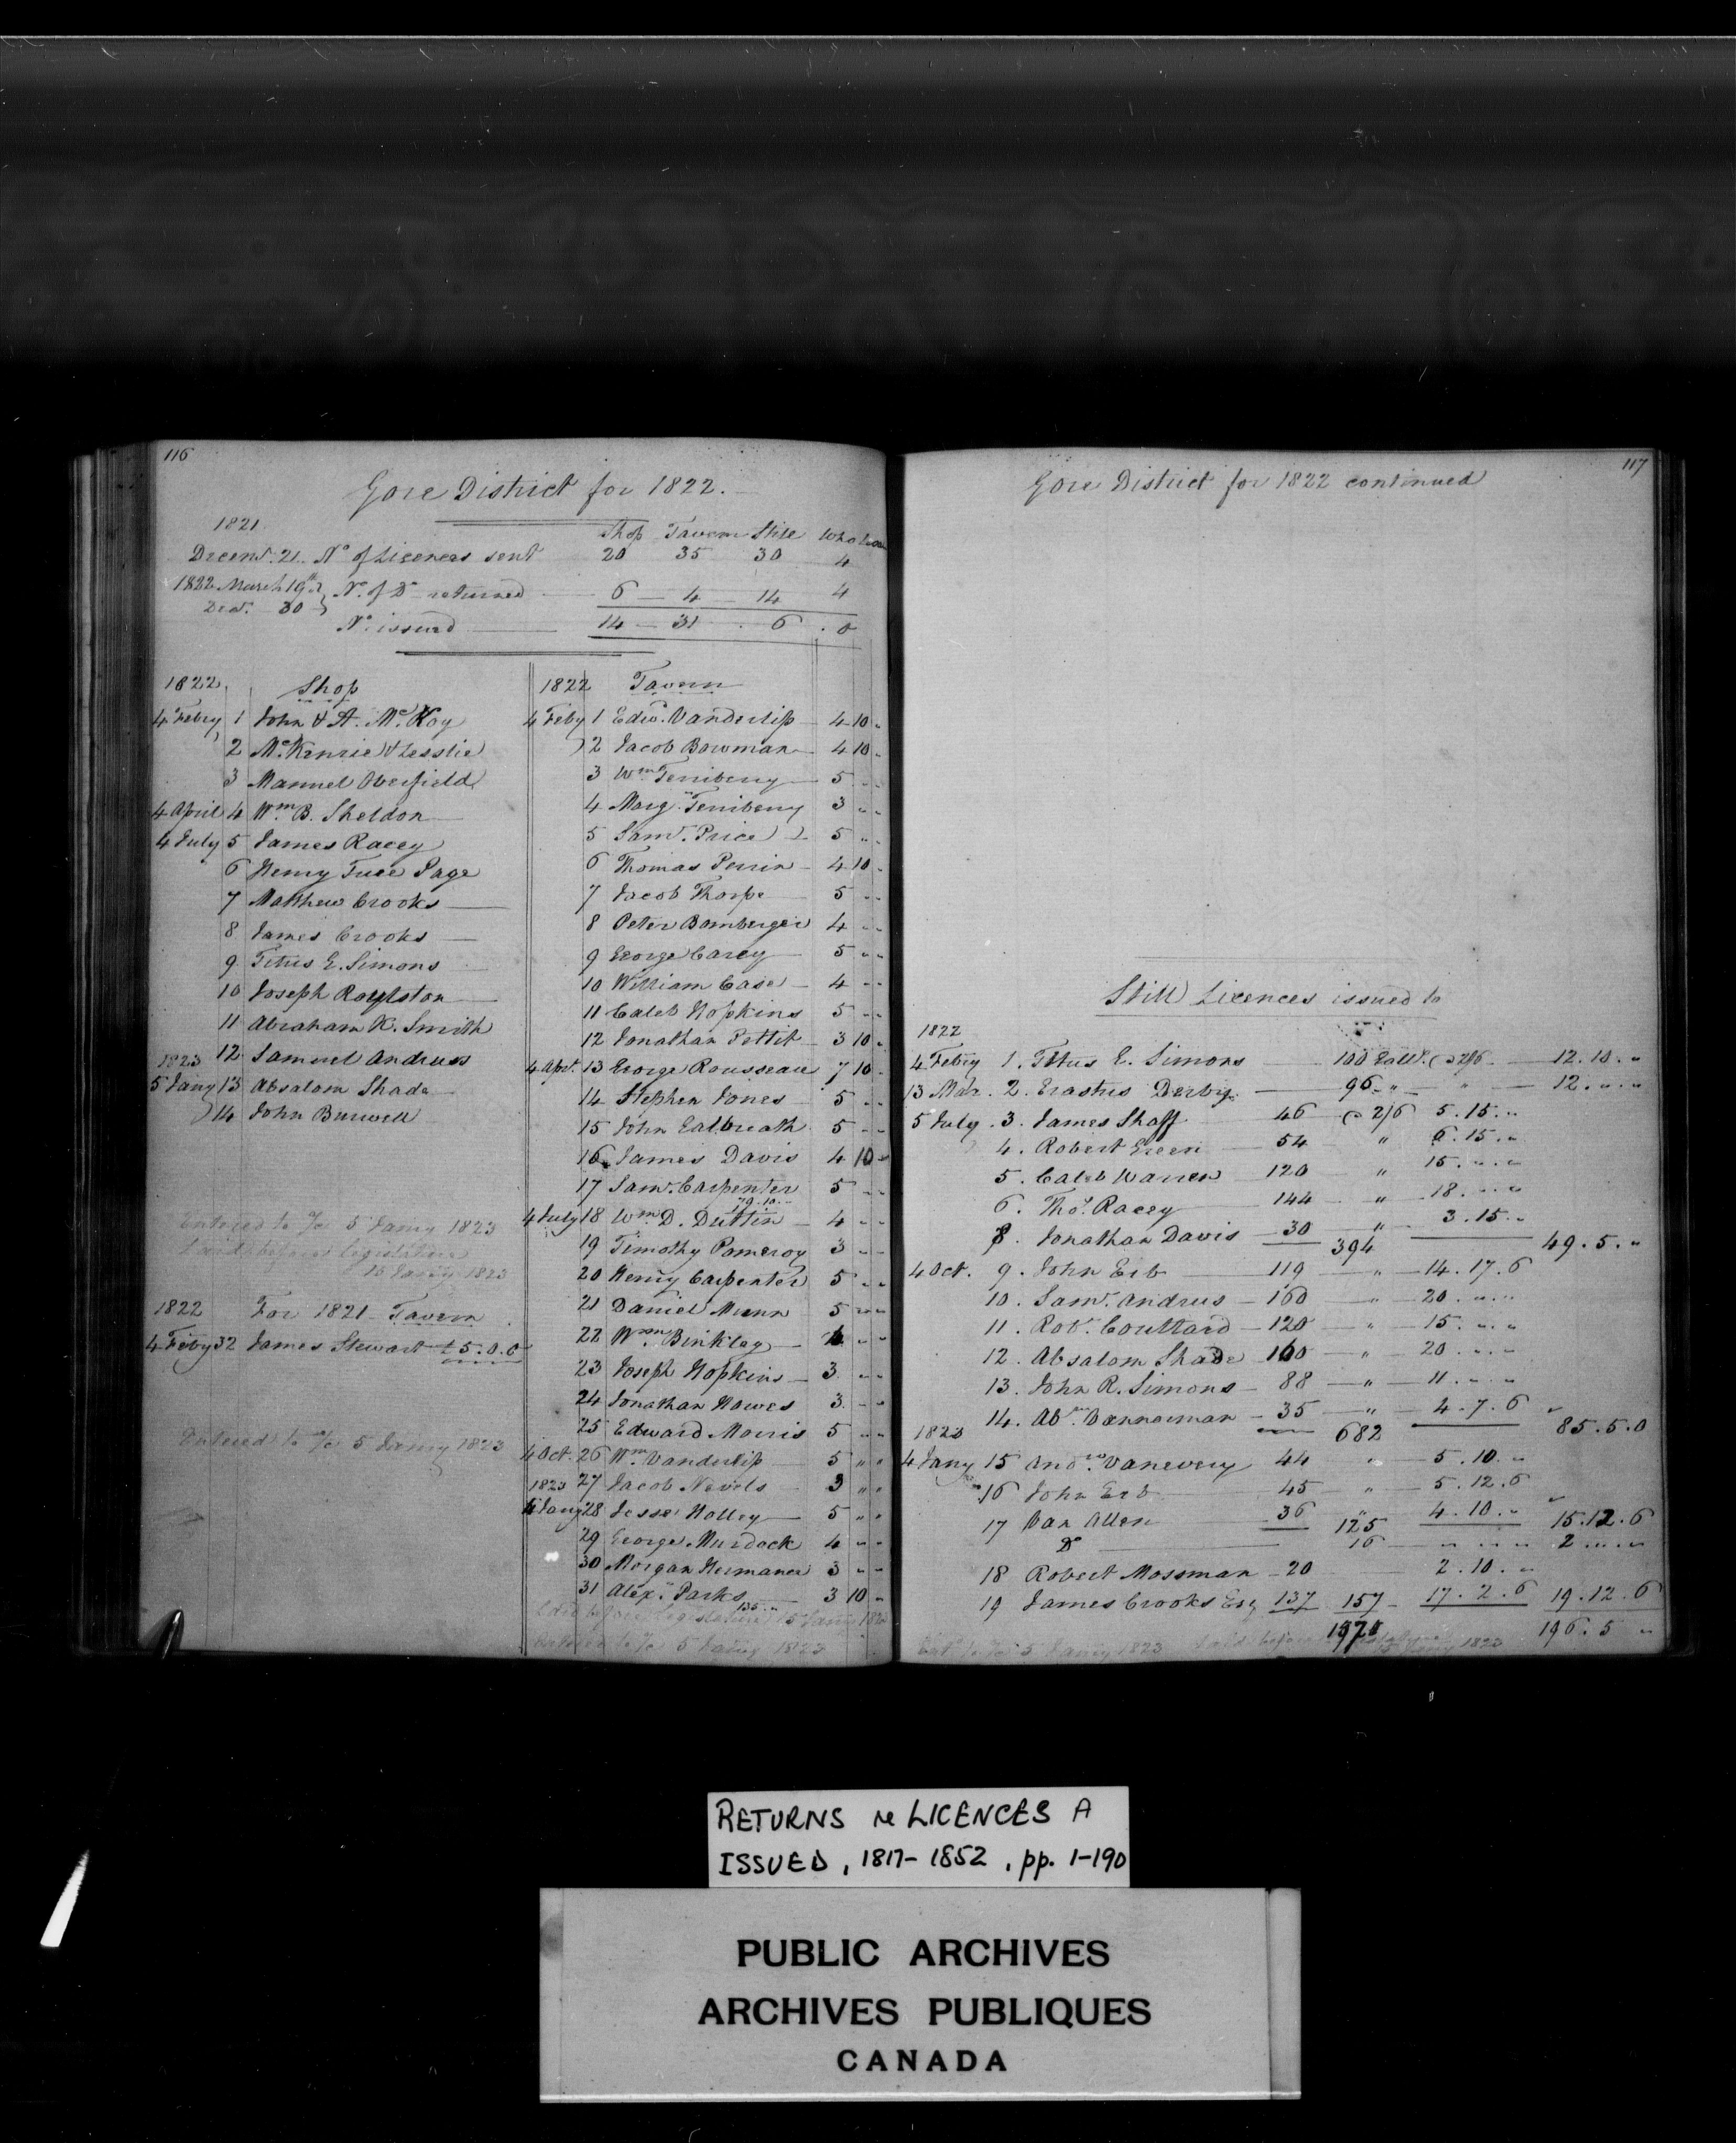 116
Gore District for 1822.
1821
Shop Tavern Still Whole
Decemr. 21. No of Licences sent 20 35 30 4
1822 March 19th
Decr. 30 } No. of Do returned 6 4 14 4
No. issued 14 31 6 0
1822 Shop
4 Febry 1 John & A. McKay
2 McKenzie & Lesslie
3 Manuel Overfield
4 April 4 Wm B. Sheldon
4 July 5 James Racey
6 Henry Tuce Page
7 Matthew Crooks
8 James Crooks
9 Titus G. Simons
10 Joseph Roylston
11 Abraham K. Smith
12 Samuel Andruss
1823
5 Jany 13 Absalom Shade
14 John Burwell
Entered to a/c 5 Jany 1823
Laid before Legislature
15 Jany 1823
1822 For 1821 Tavern
4 Feby 32 James Stewart £5.0.0
Entered to a/c 5 Jany 1823
1822 Tavern
4 Feby 1 Edwd. Vanderlip 4 10 "
2 Jacob Bowman 4 10 "
3 Wm Terriberry 5 " "
4 Marg. Terriberry 3 " "
5 Saml. Price 5 " "
6 Thomas Perrin 4 10 "
7 Jacob Thorpe 5 " "
8 Peter Bamberger 4 " "
9 George Carey 5 " "
10 William Case 4 " "
11 Caleb Hopkins 5 " "
12 Jonathan Pettit 3 10 "
4 Apr. 13 George Rousseau 7 10 "
14 Stephen Jones 5 " "
15 John Galbreath 5 " "
16 James Davis 4 10 "
17 Saml. Carpenter 5 " "
79.10."
4 July 18 Wm D. Dutton 4 " "
19 Timothy Pomeroy 3 " "
20 Henry Carpenter 5 " "
21 Daniel Munn 5 " "
22 Wm Binkley 4 " "
23 Joseph Hopkins 3 " "
24 Jonathan Howes 3 " "
25 Edward Morris 5 " "
4 Oct. 26 Wm Vanderlip 5 " "
1823 27 Jacob Nevels 3 " "
4 Jany 28 Jesse Holley 5 " "
29 George Murdock 4 " "
30 Morgan Hermance 3 " "
31 Alexr. Parks 3 10 "
135 " "
Laid before Legislature 15 Jany 182
Entered to a/c 5 Jany 1823
117
Gore District for 1822 continued
Still Licences issued to
1822
4 Febry 1. Titus G. Simons 100 Galls. @ 2/6 12.10."
13 Mar. 2. Erastus Derby 96 " " 12."."
5 July 3. James Shaff 46 @ 2/6 5.15."
4. Robert Green 54 " 6.15."
5. Caleb Warren 120 " 15."."
6. Thos. Racey 144 " 18."."
8. Jonathan Davis 30 " 3.15."
394 49.5."
4 Oct. 9. John Erb 119 " 14.17.6
10. Saml. Andrus 160 " 20."."
11. Robt. Coultard 120 " 15."."
12. Absalom Shade 160 " 20."."
13. John R. Simons 88 " 11."."
14. Abm. Vannorman 35 " 4.7.6
1823 682 85.5.0
4 Jany 15 Andrw. Vanevery 44 " 5.10."
16 John Erb 45 " 5.12.6
17 Van Allen 36 " 4.10."
125 15.12.6
Do 16 " " " 2."."
18 Robert Mossman 20 2.10."
19 James Crooks Esq 137 157 17.2.6 19.12.6
1570 196.5 "
Entd. to a/c 5 Jany 1823 Laid before Legislature 15 Jany 1823
RETURNS re LICENCES A
ISSUED, 1817-1852, pp. 1-190
PUBLIC ARCHIVES
ARCHIVES PUBLIQUES
CANADA